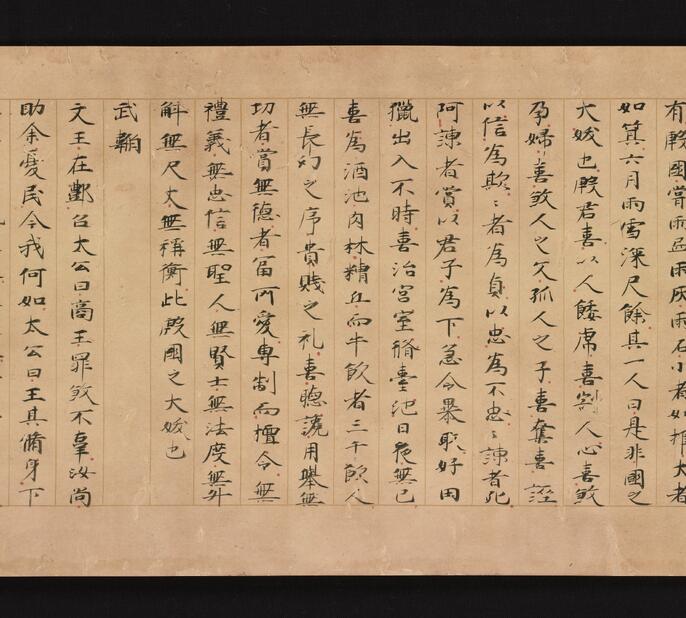 有殷國嘗雨血雨灰雨石小者如椎大者
如箕六月雨雪深尺餘其一人曰是非國之
大妖也殷君喜以人餧虎喜割人心喜煞
孕婦喜煞人之父孤人之子喜奪喜誣
以信為欺〻者為貞以忠為不忠〻諫者死
阿諛者賞以君子為下急令暴取好田
獵出入不時喜治宮室脩臺池日夜無已
喜為酒池肉林糟丘而牛飲者三千飲人
無長幼之序貴賤之礼喜聽讒用舉無
功者賞無德者富所愛專制而擅令無
禮義無忠信無聖人無賢士無法度無升
斛無尺丈無稱衡此殷國之大妖也
武韜
文王在酆召太公曰商王罪煞不辜汝尚
助余憂民今我何如太公曰王其脩身下